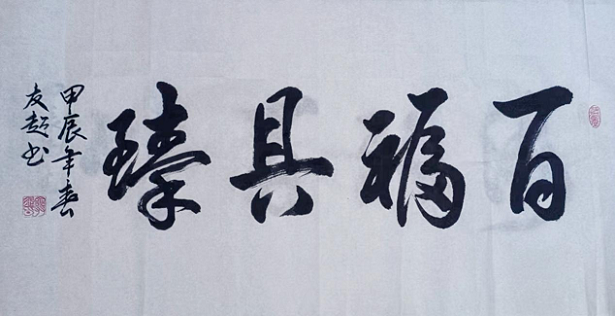 百福具臻
甲辰年春
友超书